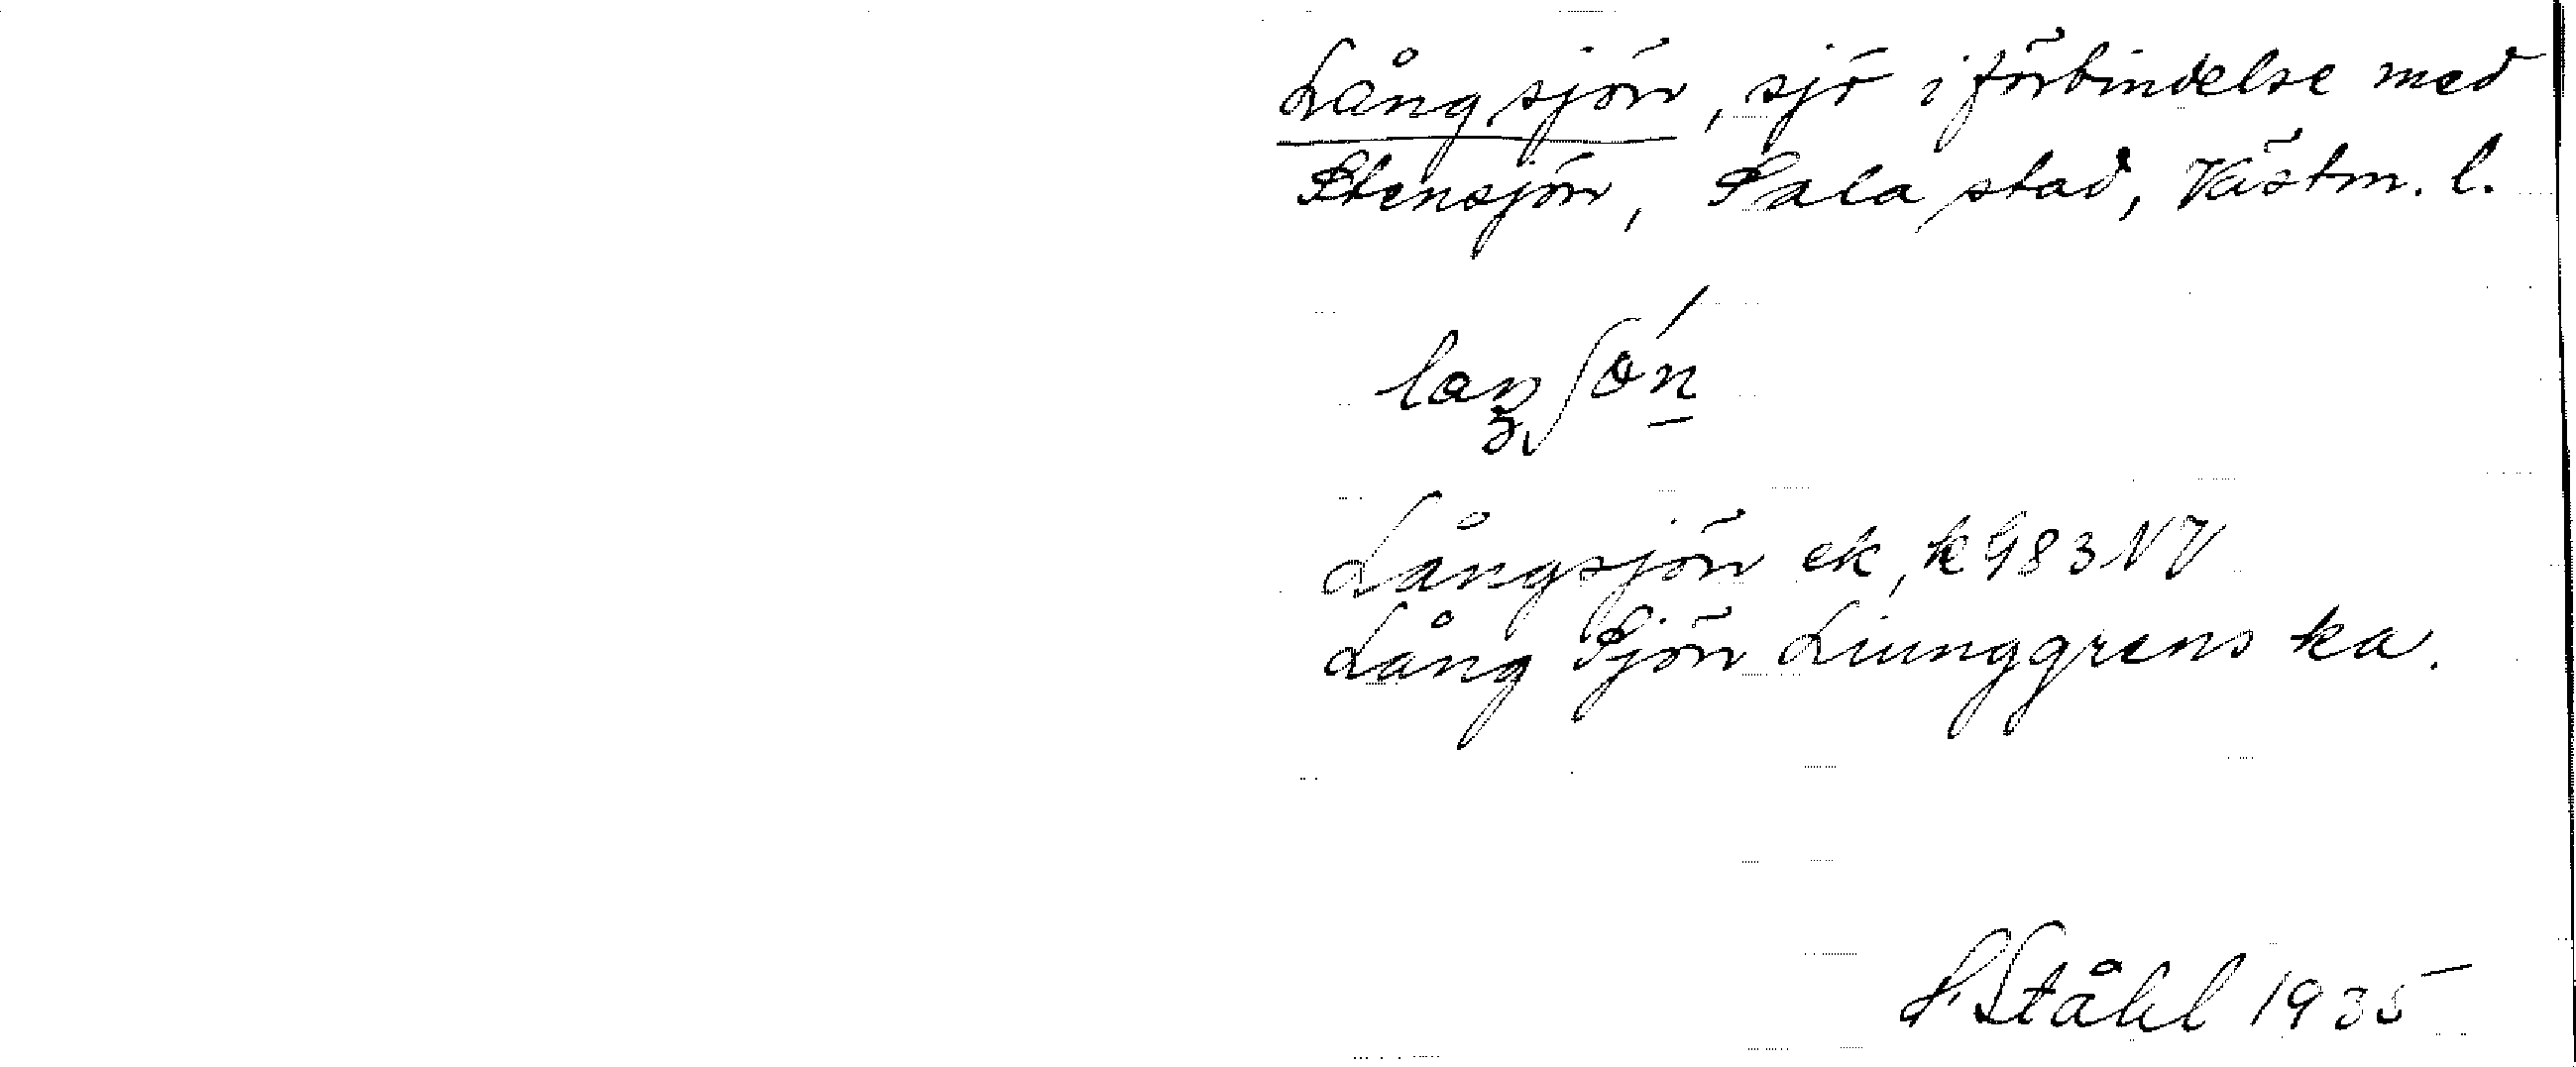 Långsjön, sjö i förbindelse med
Stensjön, Sala stad, Västm. l.
Långsjön ek, k 983 NV
Lång Sjön Liunggrens ka.
HStåhl 1935